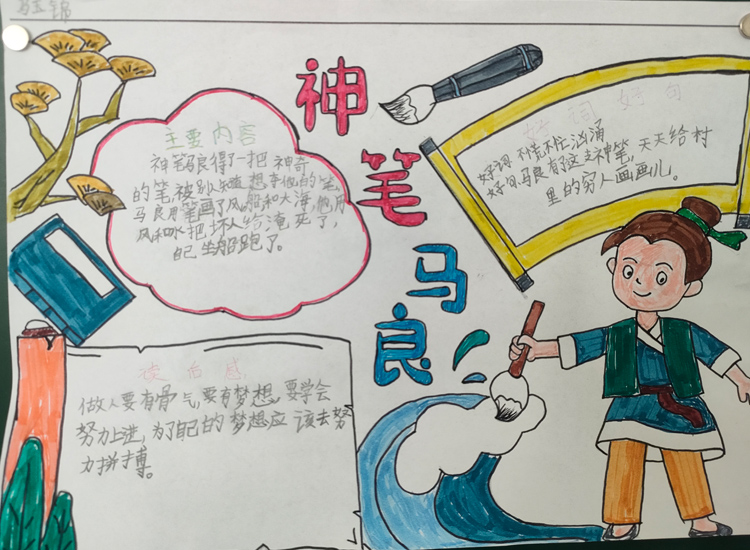 神笔马良
主要内容
神笔马良得了一把神奇
的笔被别人知道,想夺他的笔,
马良用笔画了风船和大海,他用
风和水把坏人给淹死了,
自己坐船跑了。
好词好句
好词:不慌不忙 汹涌
好句:马良有了这支神笔,天天给村
里的穷人画画儿。
读后感
做人要有骨气,要有梦想,要学会
努力上进,为了自己的梦想应该去努
力拼搏。